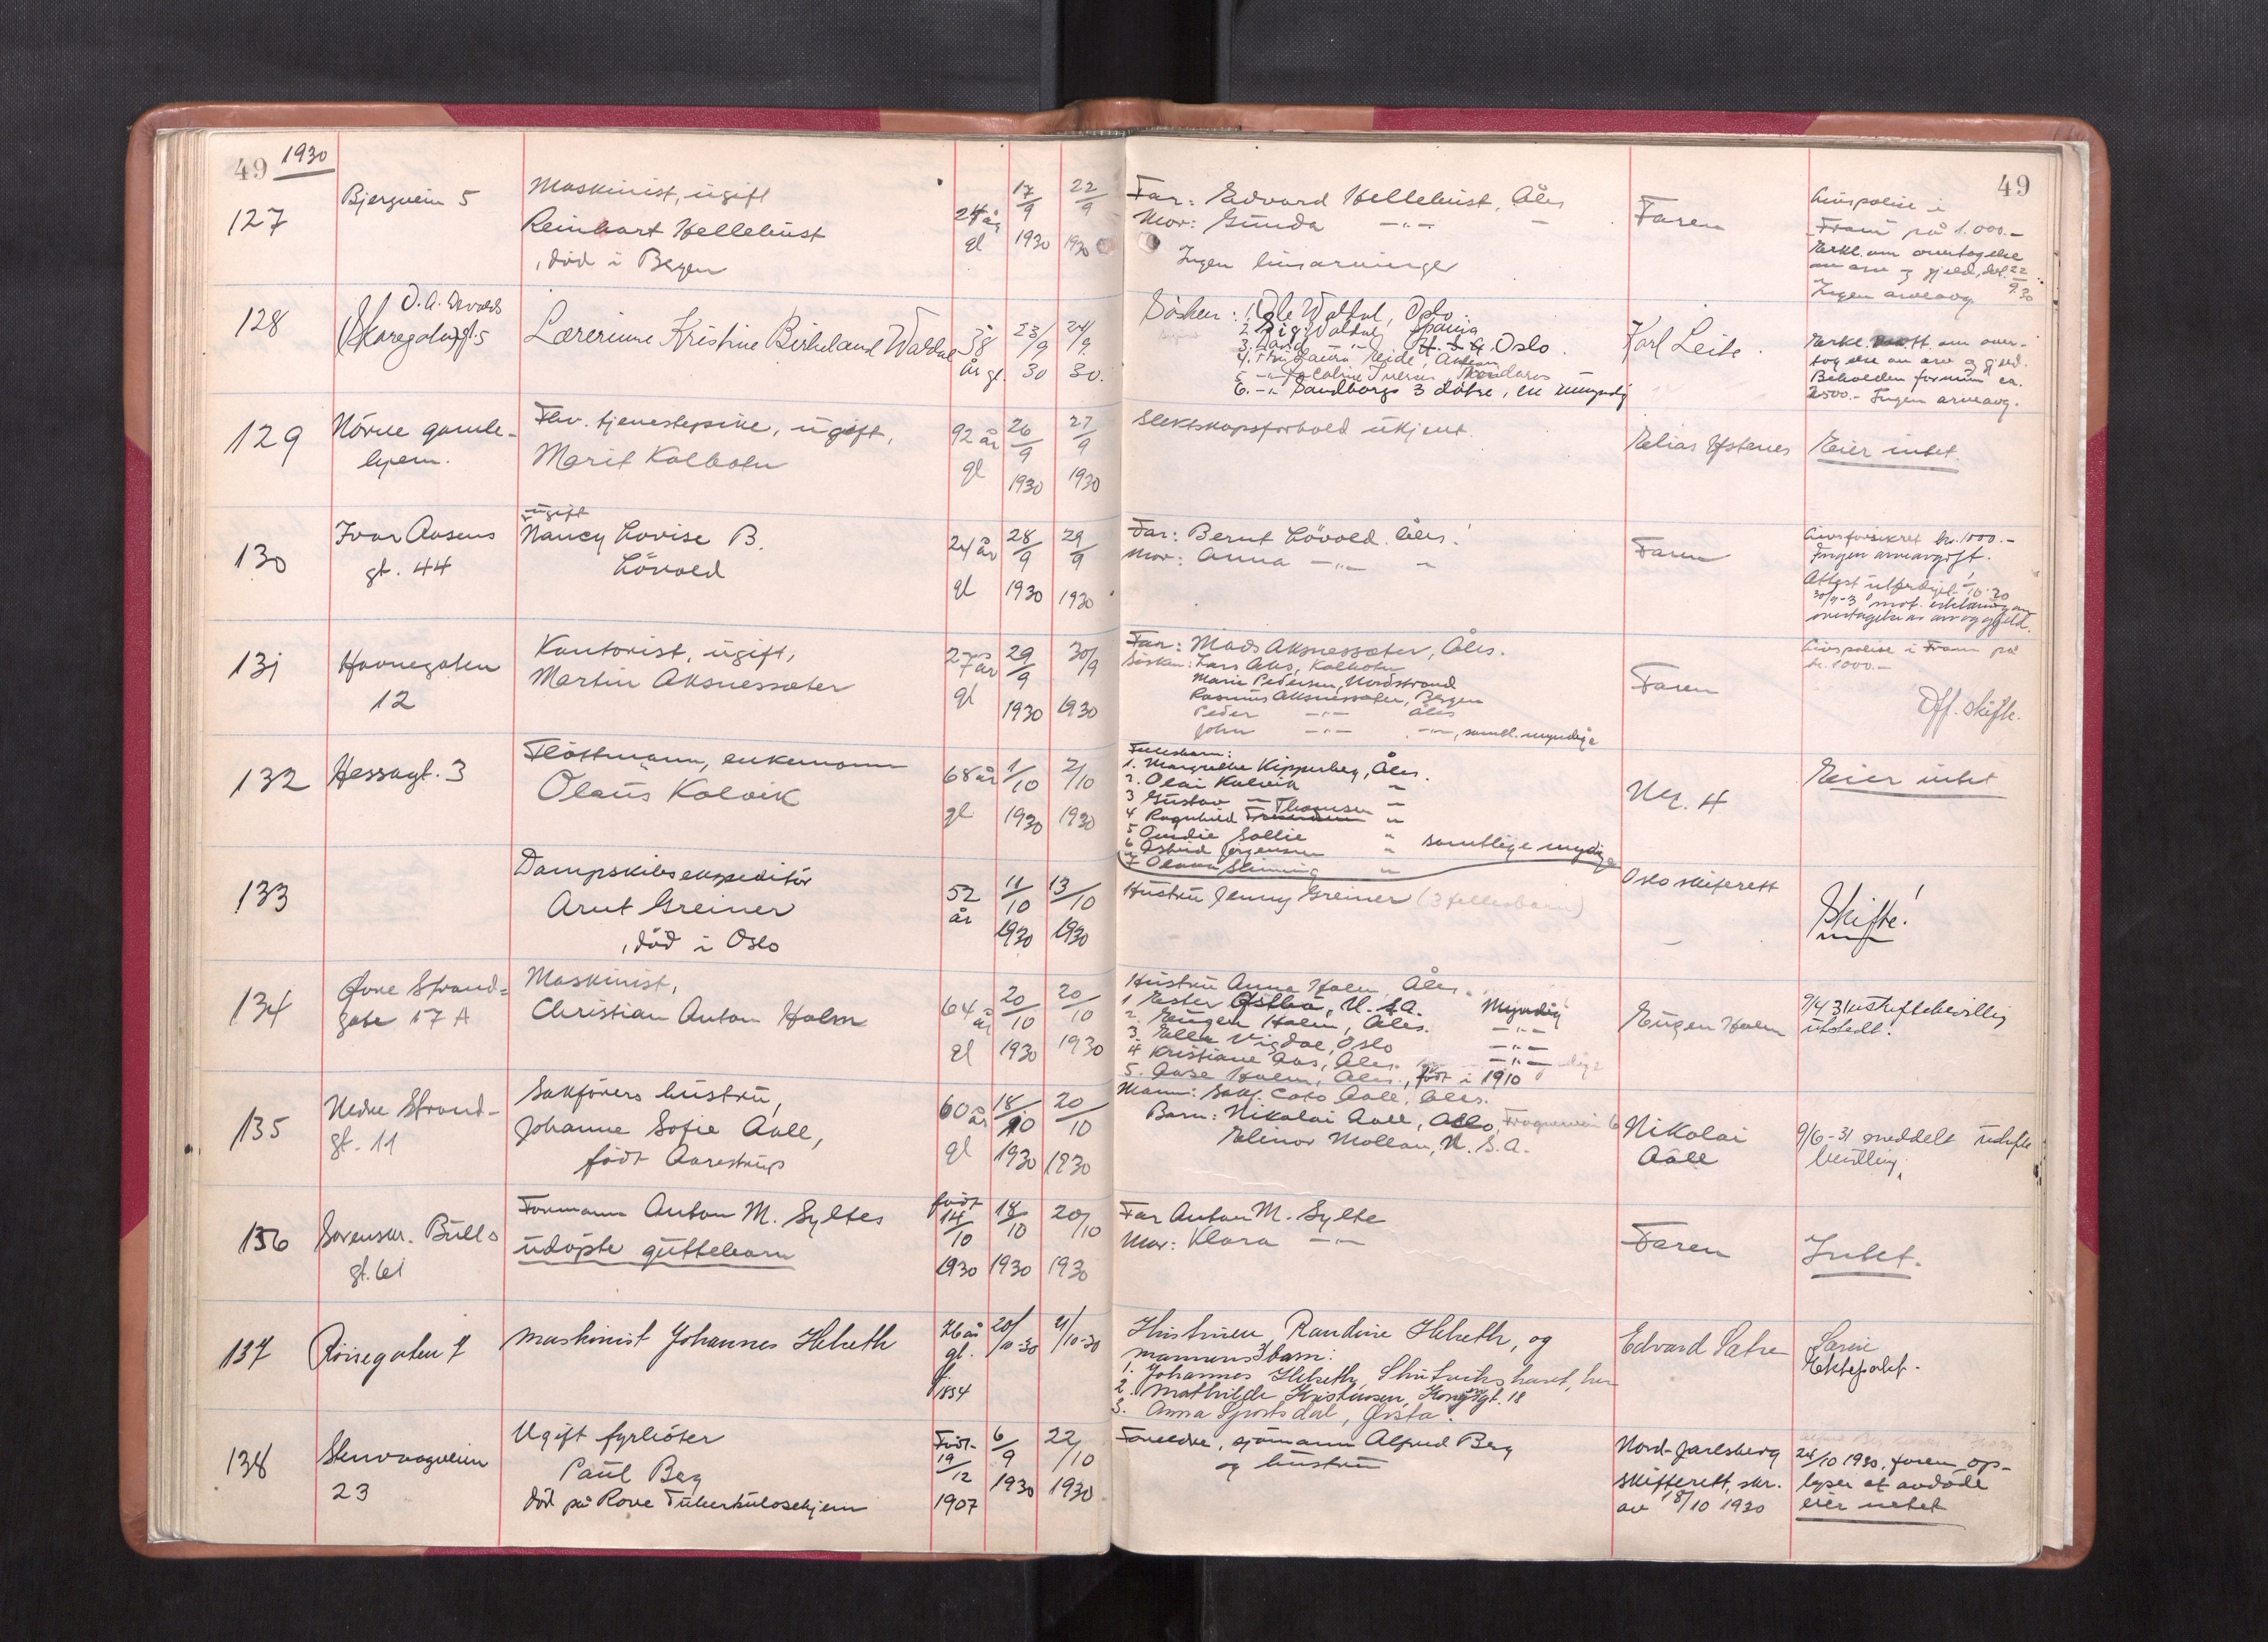 49 1930
49
127
Bjergvein 5
Maskinist, ugift
Reinhart Hellehust
, död i Bergen
24 år gl
17/9 1930
22/9 1930
Far: Edvard Hellehust, Åles
Mor: Gunda —"— —
Ingen livsarvinger
Faren
Livspolise i
Fram på 1.000.-
Erkl. om overtagelse
av arv og gjeld, dat. 22/9.30
Ingen arveavg.
128
O. A. Devolds
(Skaregaten) gt 5
Lærerinne Kristine Birkeland Waldal
58 år gl.
23/9 30
24/9. 30.
Søsken: 1. Ole Waldal, Oslo.
2. Sig. Waldal, Spania
3. David —"— U. S. A. Oslo.
4. Fru Laura Eide,
5. —"— Jacobine Iversen, Nidaros
6. —"— Sandborgs 3 døtre, en umyndig
Karl Leite.
Erkl. mott. om over-
tagelse av arv og gjeld.
Beholden formue ca.
2500.- Ingen arveavg.
129
Nörve gamle-
hjem.
Fhv. tjenestepike, ugift,
Marit Kolbotn
92 år gl
26/9 1930
27/9 1930
Slektskapsforhold ukjent.
Elias Ystenes
Eier intet.
130
Ivar Aasens
gt. 44
ugift
Nancy Lovise B.
Lövold
24 år gl
28/9 1930
29/9 1930
Far: Bernt Lövold. Åles!
Mor: Anna —"— "
Faren
Livsforsikret kr. 1000.-
Ingen arveavgift.
Attest utferdiget 1/10-30
mot erklæring om
overtagelse av arv og gjeld.
131
Havnegaten
12
Kontorist, ugift,
Martin Aksnessæter
27 år gl
29/9 1930
30/9 1930
Far: Mads Aksnessæter, Åles.
Søsken: Lars Aks, Kolbotn
Marie Pedersen, Nordstrand
Rasmus Aksnessæter, Bergen
Peder —"— Åles
John —"— —"—, samtl. myndige
Faren
Livspolise i Fram på
kr. 1000.-
Off. skifte.
132
Hessagt. 3
Flöttmann, enkemann
Olaus Kalvik
68 år gl
1/10 1930
2/10 1930
Fellesbarn:
1. Margrethe Kipperberg, Åles.
2. Olai Kalvik "
3 Gustav — "
4 Ragnhild Thomsen "
5 Gudie Sollie "
6 Astrid Jørgensen " samtlige myndige
7 Olava Slinning "
Eier intet
133
Dampskibsekspeditör
Arnt Greiner
, död i Oslo
52 år
11/10 1930
13/10 1930
Hustru Jenny Greiner (3 fellesbarn)
Oslo skifterett
Skifte!
134
Øvre Strand-
gate 17 A
Maskinist,
Christian Anton Holm
64 år gl
20/10 1930
20/10 1930
Hustru Anna Holm, Åles.
1 Ester Østbö, U. S. A. Myndig
2. Eugen Holm, Åles. —"—
3. Ella Vigdal, Oslo —"—
4 Kristiane Aas, Åles. —"—
5. Aase Holm, Åles., født i 1910
Eugen Holm
9/4 31 uskiftebevilling
utstedt.
135
Nedre Strand-
gt. 11
Sakförers hustru,
Johanne Sofie Aall,
född Aarestrup
60 år gl
18/10 1930
20/10 1930
Mann: Sakf. Cato Aall, Åles.
Barn: Nikolai Aall, Oslo, Frognerveien 6
Elinor Mollan, U. S. A.
Nikolai
Aall
9/6-31 meddelt uskifte
bevilling.
136
Sorenskr. Bulls
gt. 61
Formann Anton M. Syltes
udöpte guttebarn
född 14/10 1930
18/10 1930
20/10 1930
Far Anton M. Sylte
Mor: Klara —"—
Faren
Intet.
137
Rönnegaten 7
maskinist Johannes Helseth
76 år gl. f/1854
20/10-30
21/10-30
Hustruen, Randine Helseth, og
mannens 3 barn:
1. Johannes Helseth, her
2. Mathilde Kristensen, Kongensgt. 18
3. Anna Sjortsdal, Ørsta.
Edvard Satre
Særeie
Ektepakt.
138
Stenvaagveien
23
Ugift fyrböter
Paul Berg
död på Rove Tuberkulosehjem
Född 19/12 1907
6/9 1930
22/10 1930
Foreldre, sjömann Alfred Berg
og hustru
Nord-Jarlsberg
skifterett, skr.
av 18/10 1930
24/10 1930. faren op-
lyser at avdöde
eier intet